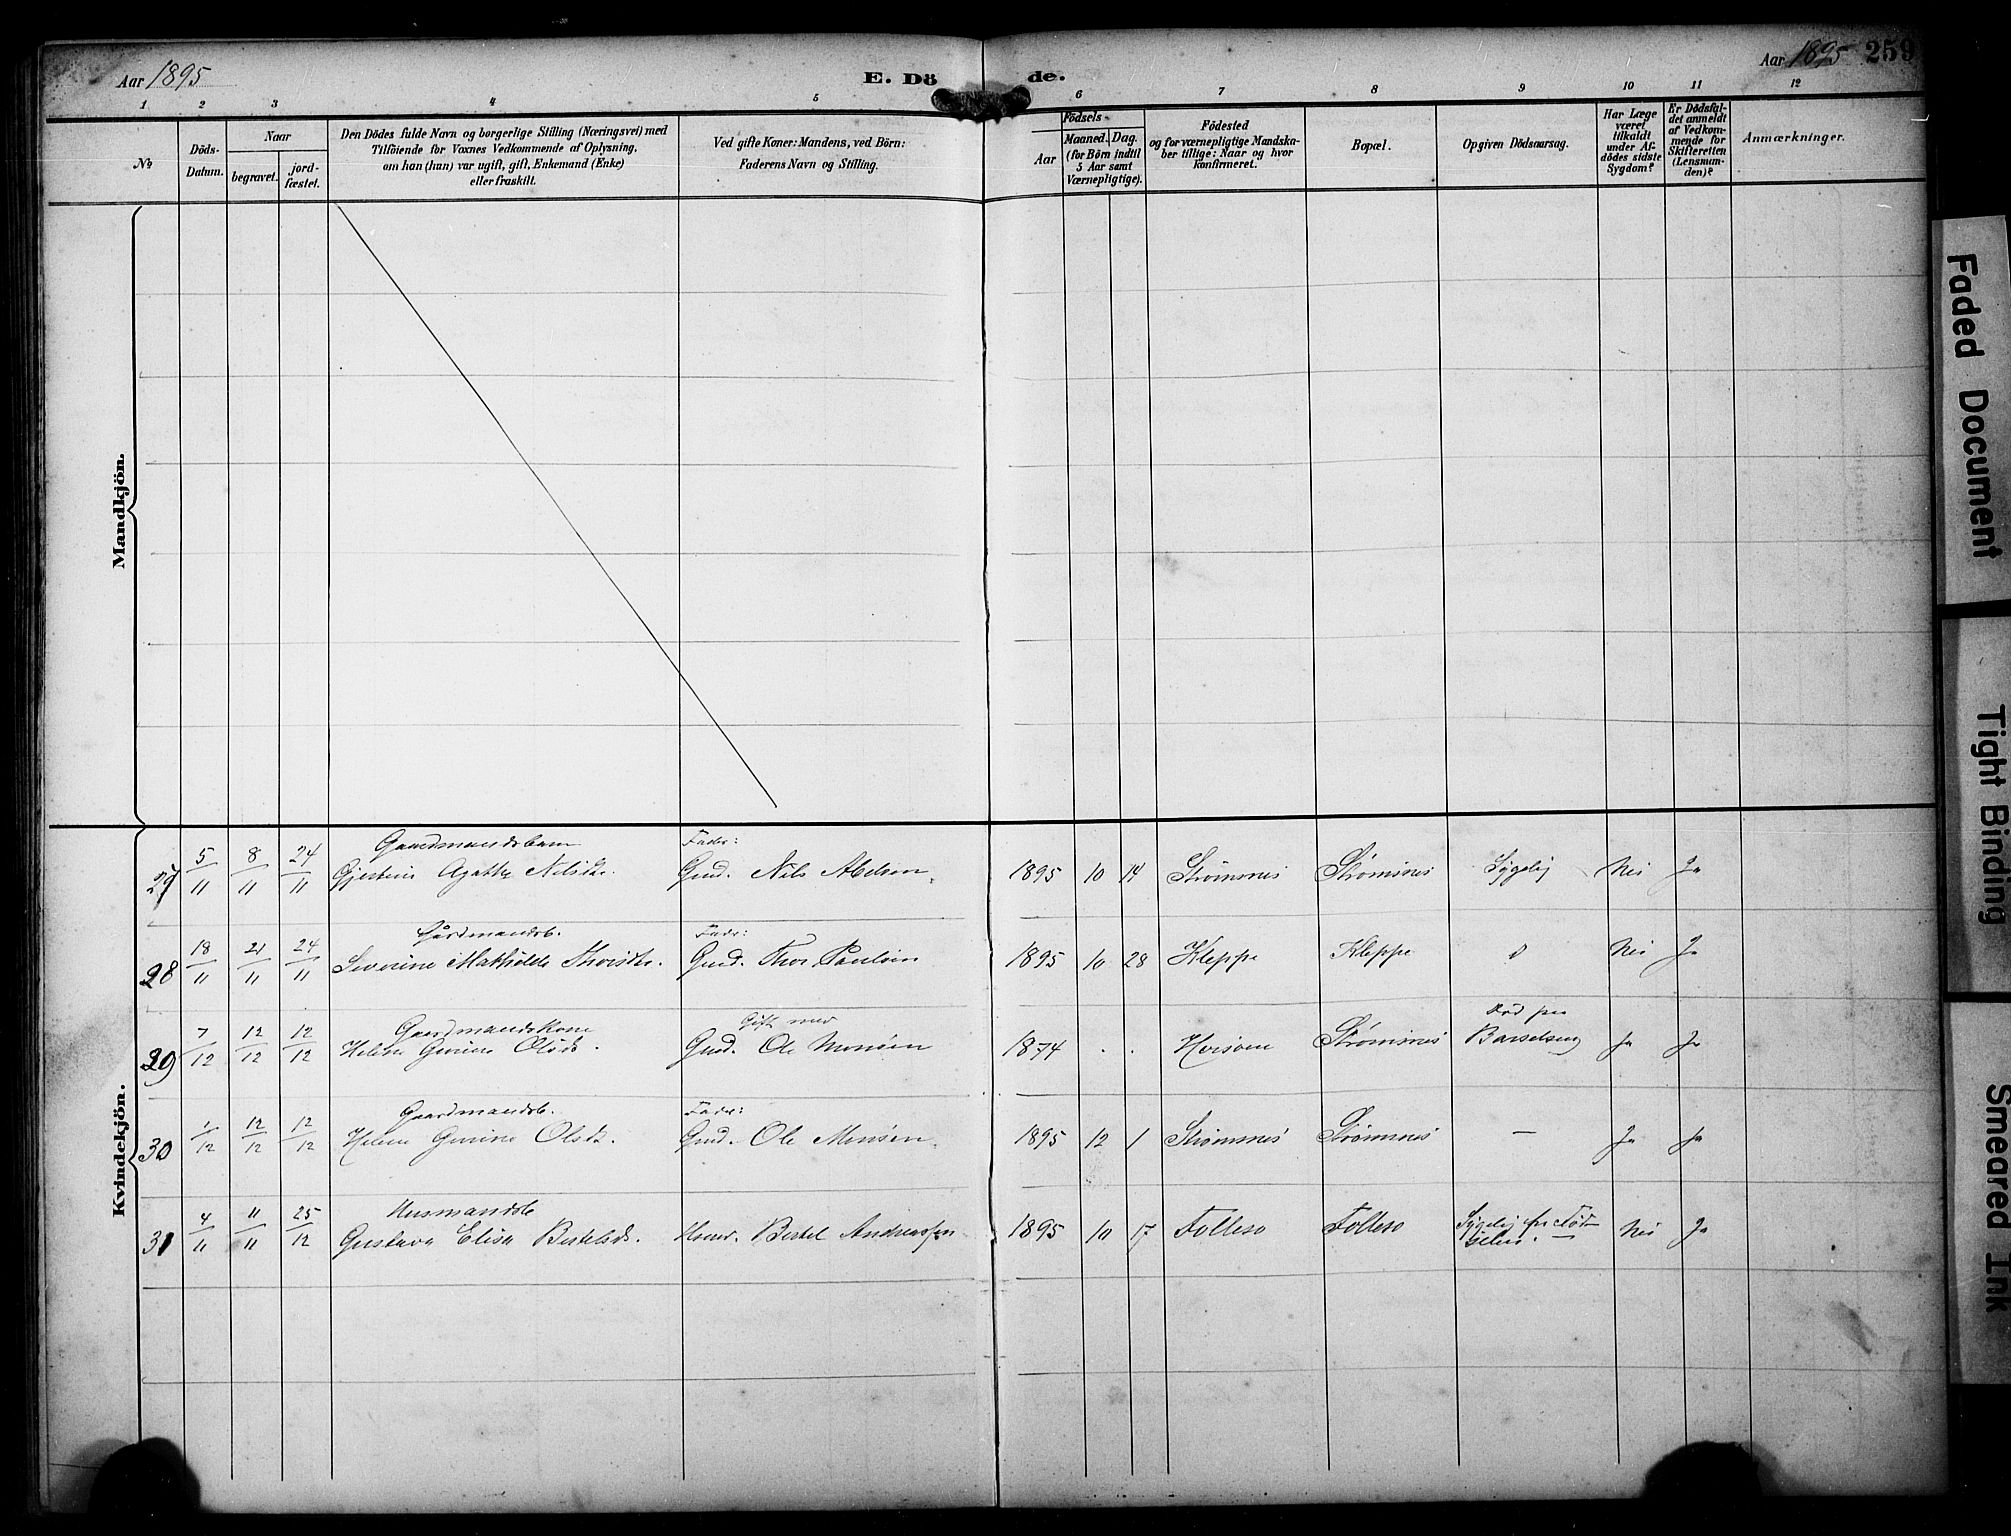 Aar 1895
E. Dö
de.
Aar 1895 259
1 2 3 4 5 6 7 8 9 10 11 12
No
Döds-
Datum.
Naar
begravet.
jord-
fæstet.
Den Dödes fulde Navn og borgerlige Stilling (Næringsvei) med
Tilföiende for Voxnes Vedkommende af Oplysning,
om han (hun) var ugift, gift, Enkemand (Enke)
eller fraskilt.
Ved gifte Koner: Mandens, ved Börn:
Faderens Navn og Stilling.
Födsels-
Aar
Maaned. Dag.
(for Börn indtil
5 Aar samt
Værnepligtige).
Födested
og for værnepligtige Mandska-
ber tillige: Naar og hvor
konfirmeret.
Bopæl.
Opgiven Dödsaarsag.
Har Læge
været
tilkaldt
under Af-
dödes sidste
Sygdom?
Er Dödsfal-
det anmeldt
af Vedkom-
mende for
Skifteretten
(Lensman-
den)?
Anmærkninger.
Mandkjön.
Kvindekjön.
Gaardmandsbarn Fader:
27 5/11 8/11 24/11 Agathe Nilsdtr. Gmd. Nils Abelsen. 1895 10 14 Strømsnes Strømsnes Sygelig Nei Ja
Gårdmandsb. Fader:
28 18/11 21/11 24/11 Severine Mathilde Thorsdtr. Gmd. Thor Paulsen 1895 10 28 Kleppe Kleppe Nei Ja
Gaardmandskone Gift med Død paa
29 7/12 12/12 12/12 Helene Olsdtr. Gmd. Ole Monsen 1874 . . Strømsnes Barselseng Ja Ja
Gaardmandsb. Fader:
30 1/12 12/12 12/12 Helene Olsdtr. Gmd. Ole Monsen. 1895 12 1 Strømsnes Strømsnes — Ja Ja
Husmandsb.
31 4/11 11/11 25/12 Gustava Elisa Bertelsd. Husm. Bertel Andreassen 1895 10 17 Follesø Follesø Sygelig fra Fød-
selen. — Nei Ja
Faded Document
Tight Binding
Smeared Ink